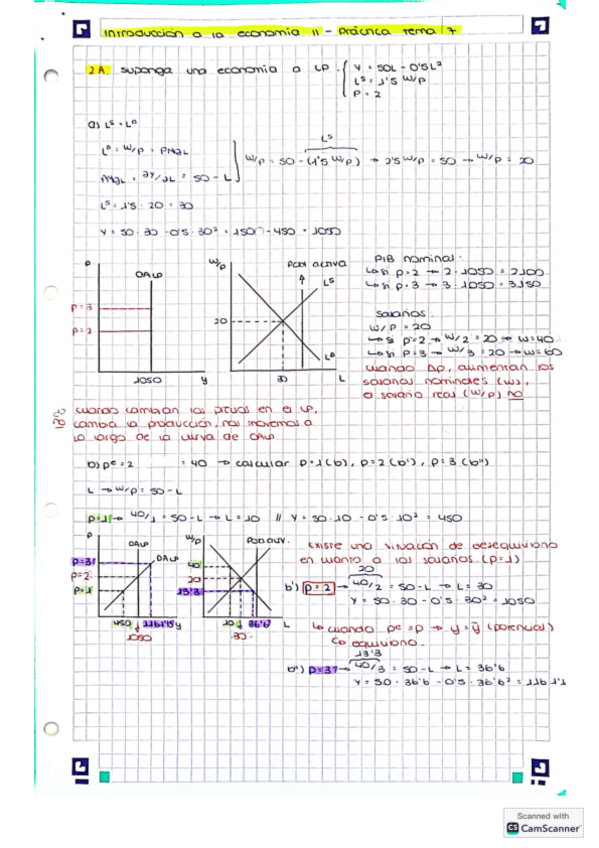 Introducción a la economía II - Práctica tema 7
2A. Suponga una economía a LP. { Y = 50L - 0'5L²
Lˢ = 1'5 W/P
P = 2
a) Lˢ = Lᴰ
Lᴰ = W/P = PMgL
PMgL = ∂Y/∂L = 50 - L
Lˢ
W/P = 50 - (1'5 W/P) → 2'5 W/P = 50 → W/P = 20
Lˢ = 1'5 · 20 = 30
Y = 50 · 30 - 0'5 · 30² = 1500 - 450 = 1050
P
OALP
P = 3
P = 2
1050
Y
W/P
Pobl activa
Lˢ
20
Lᴰ
30
L
PIB nominal:
Si P=2 → 2 · 1050 = 2100
Si P=3 → 3 · 1050 = 3150
Salarios:
W/P = 20
Si P=2 → W/2 = 20 → W=40
Si P=3 → W/3 = 20 → W=60
Cuando ΔP, aumentan los
salarios nominales (W),
el salario real (W/P) no
cuando cambian los precios en el LP,
cambia la producción, nos movemos a
lo largo de la curva de OALP
b) Pᵉ = 2 = 40 → calcular P=1 (b), P=2 (b'), P=3 (b'')
L → W/P = 50 - L
P=1 → 40/1 = 50 - L → L = 10 // Y = 50 · 10 - 0'5 · 10² = 450
P
OALP
P=3
P=2
P=1
450
1050
Y
W/P
Pob auv.
40
20
13'3
10
30
36'6
L
Existe una situación de desequilibrio
en cuanto a los salarios. (P=1)
20
b') P=2 → 40/2 = 50 - L → L = 30
Y = 50 · 30 - 0'5 · 30² = 1050
cuando Pᵉ = P → Y = Ȳ (potencial)
equilibrio.
13'3
b'') P=3 → 40/3 = 50 - L → L = 36'6
Y = 50 · 36'6 - 0'5 · 36'6² = 1161'1
Scanned with
CS CamScanner